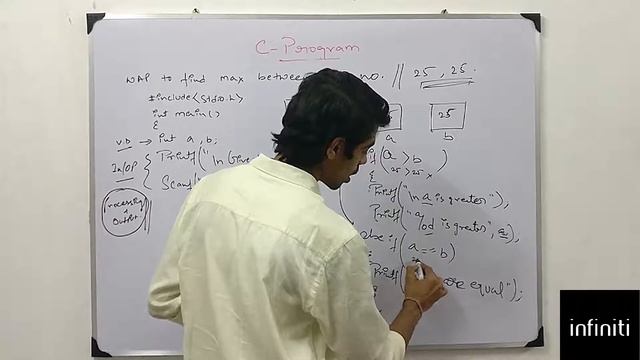 C-Program
WAP to find max between no. // 25, 25.
#include<stdio.h>
int main()
{
V.D → int a, b;
In/OP { Printf("\n Give
Scanf
Processing
Output
25
a b
if (a > b)
25 > 25 x
{
Printf("\n a is greater");
Printf(" %d is greater", a);
else if (a == b)
Printf( are equal");
infiniti